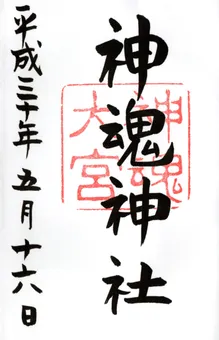 神魂神社
神魂
大宮
平成三十年五月十六日